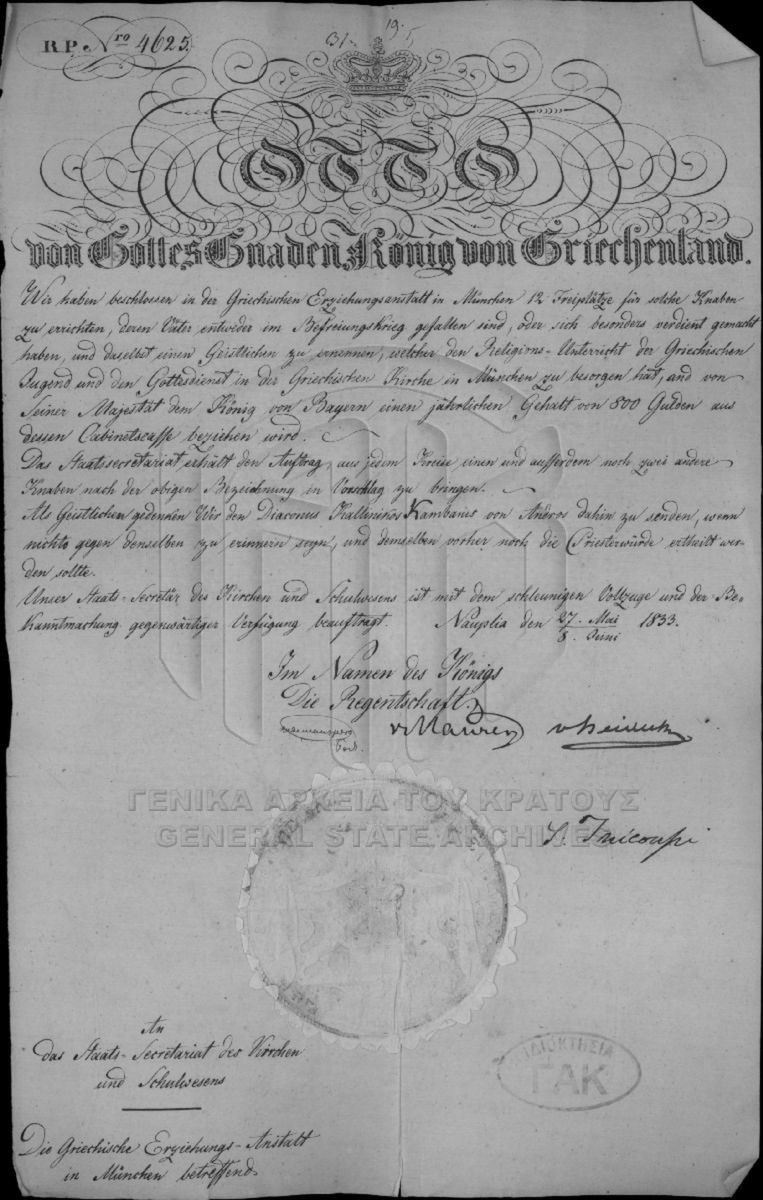 R.P. Nro 4625.
OTTO
von Gottes Gnaden König von Griechenland.
Wir haben beschlossen in der Griechischen Erziehungsanstalt in München 12 Freiplätze für solche Knaben
zu errichten, deren Väter entweder im Befreiungskrieg gefallen sind, oder sich besonders verdient gemacht
haben, und daselbst einen Geistlichen zu ernennen, welcher den Religions-Unterricht der Griechischen
Jugend und den Gottesdienst in der Griechischen Kirche in München zu besorgen hat, und von
Seiner Majestät dem König von Bayern einen jährlichen Gehalt von 800 Gulden aus
dessen Cabinetscasse beziehen wird.
Das Staatssecretariat erhält den Auftrag, aus jedem Kreise einen und ausserdem noch zwei andere
Knaben nach der obigen Bezeichnung in Vorschlag zu bringen.
Als Geistlichen gedenken Wir den Diaconus Kallinikos Kambanis von Andros dahin zu senden, wenn
nichts gegen denselben zu erinnern seyn, und demselben vorher noch die Priesterwürde ertheilt wer-
den sollte.
Unser Staats-Secretär des Kirchen und Schulwesens ist mit dem schleunigen Vollzuge und der Be-
kanntmachung gegenwärtiger Verfügung beauftragt. Nauplia den 27. Mai / 8. Juni 1833.
Im Namen des Königs
Die Regentschaft
v Maurer v Heideck
ΓΕΝΙΚΑ ΑΡΧΕΙΑ ΤΟΥ ΚΡΑΤΟΥΣ
GENERAL STATE ARCHIVES
S. Tricoupi
An
das Staats-Secretariat des Kirchen
und Schulwesens
ΙΔΙΟΚΤΗΣΙΑ
ΓΑΚ
Die Griechische Erziehungs-Anstalt
in München betreffend.